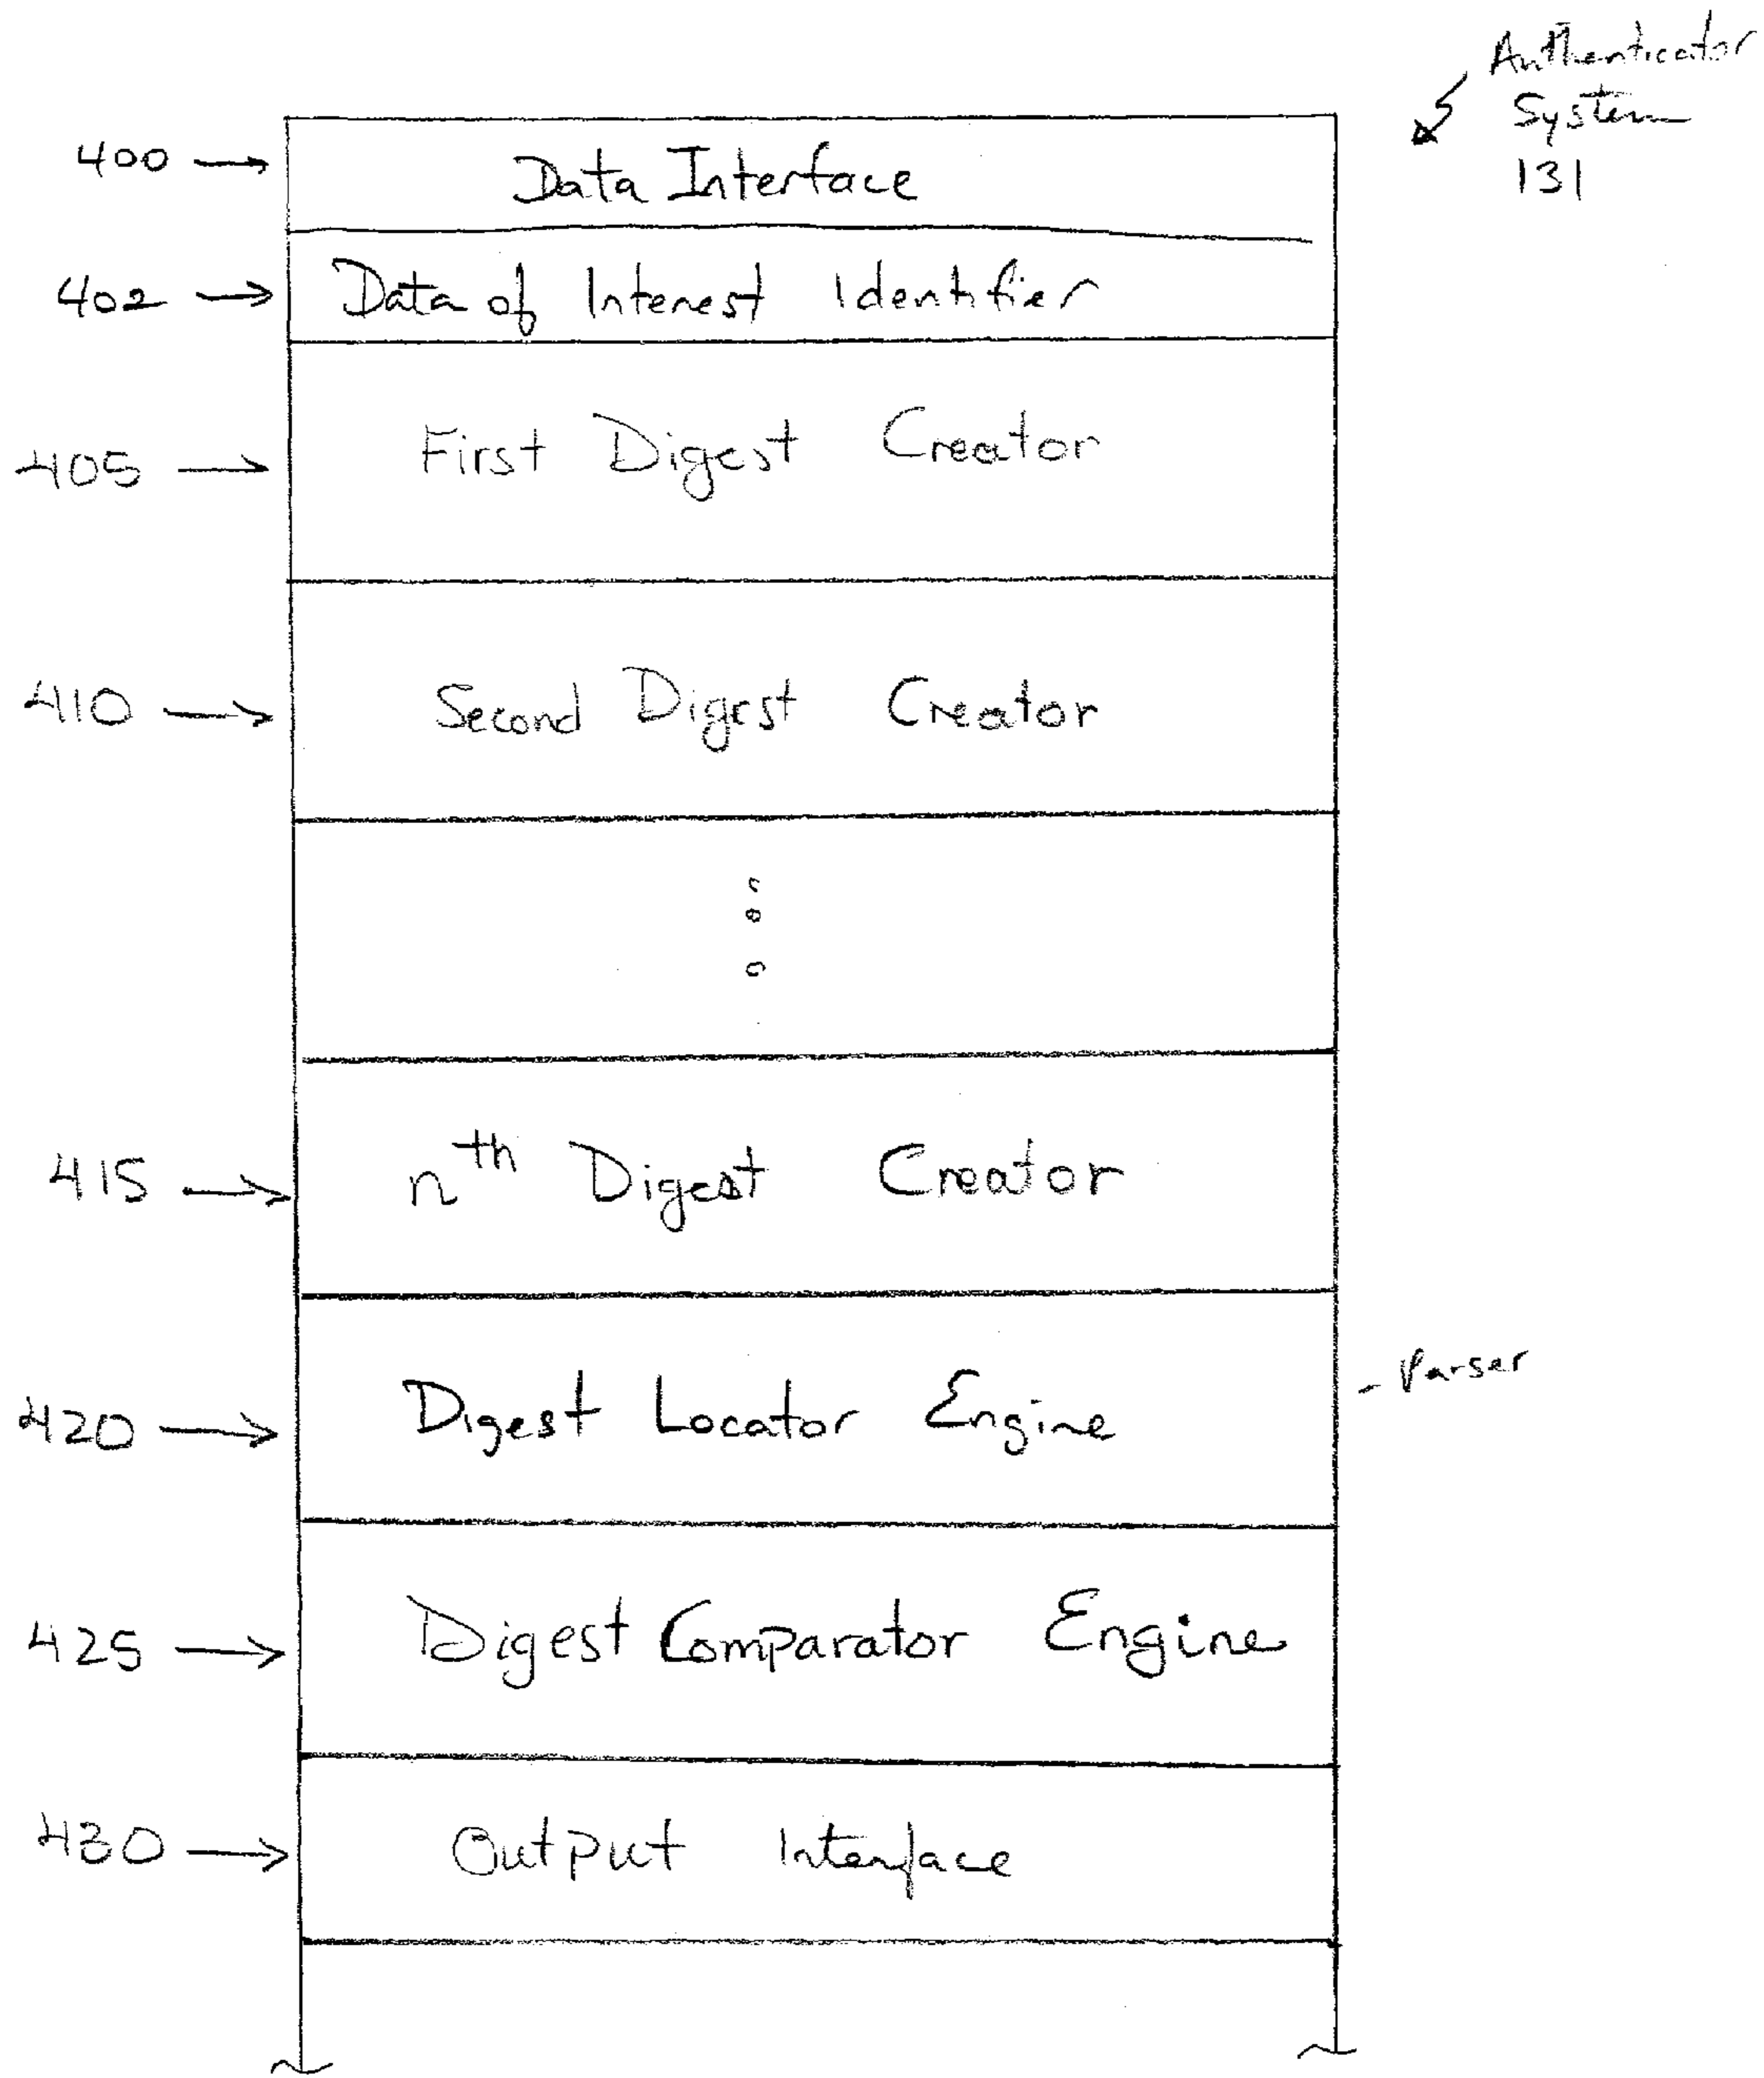 Authenticator
System
131
400 → Data Interface
402 → Data of Interest Identifier
405 → First Digest Creator
410 → Second Digest Creator
415 → nth Digest Creator
420 → Digest Locator Engine - Parser
425 → Digest Comparator Engine
430 → Output Interface